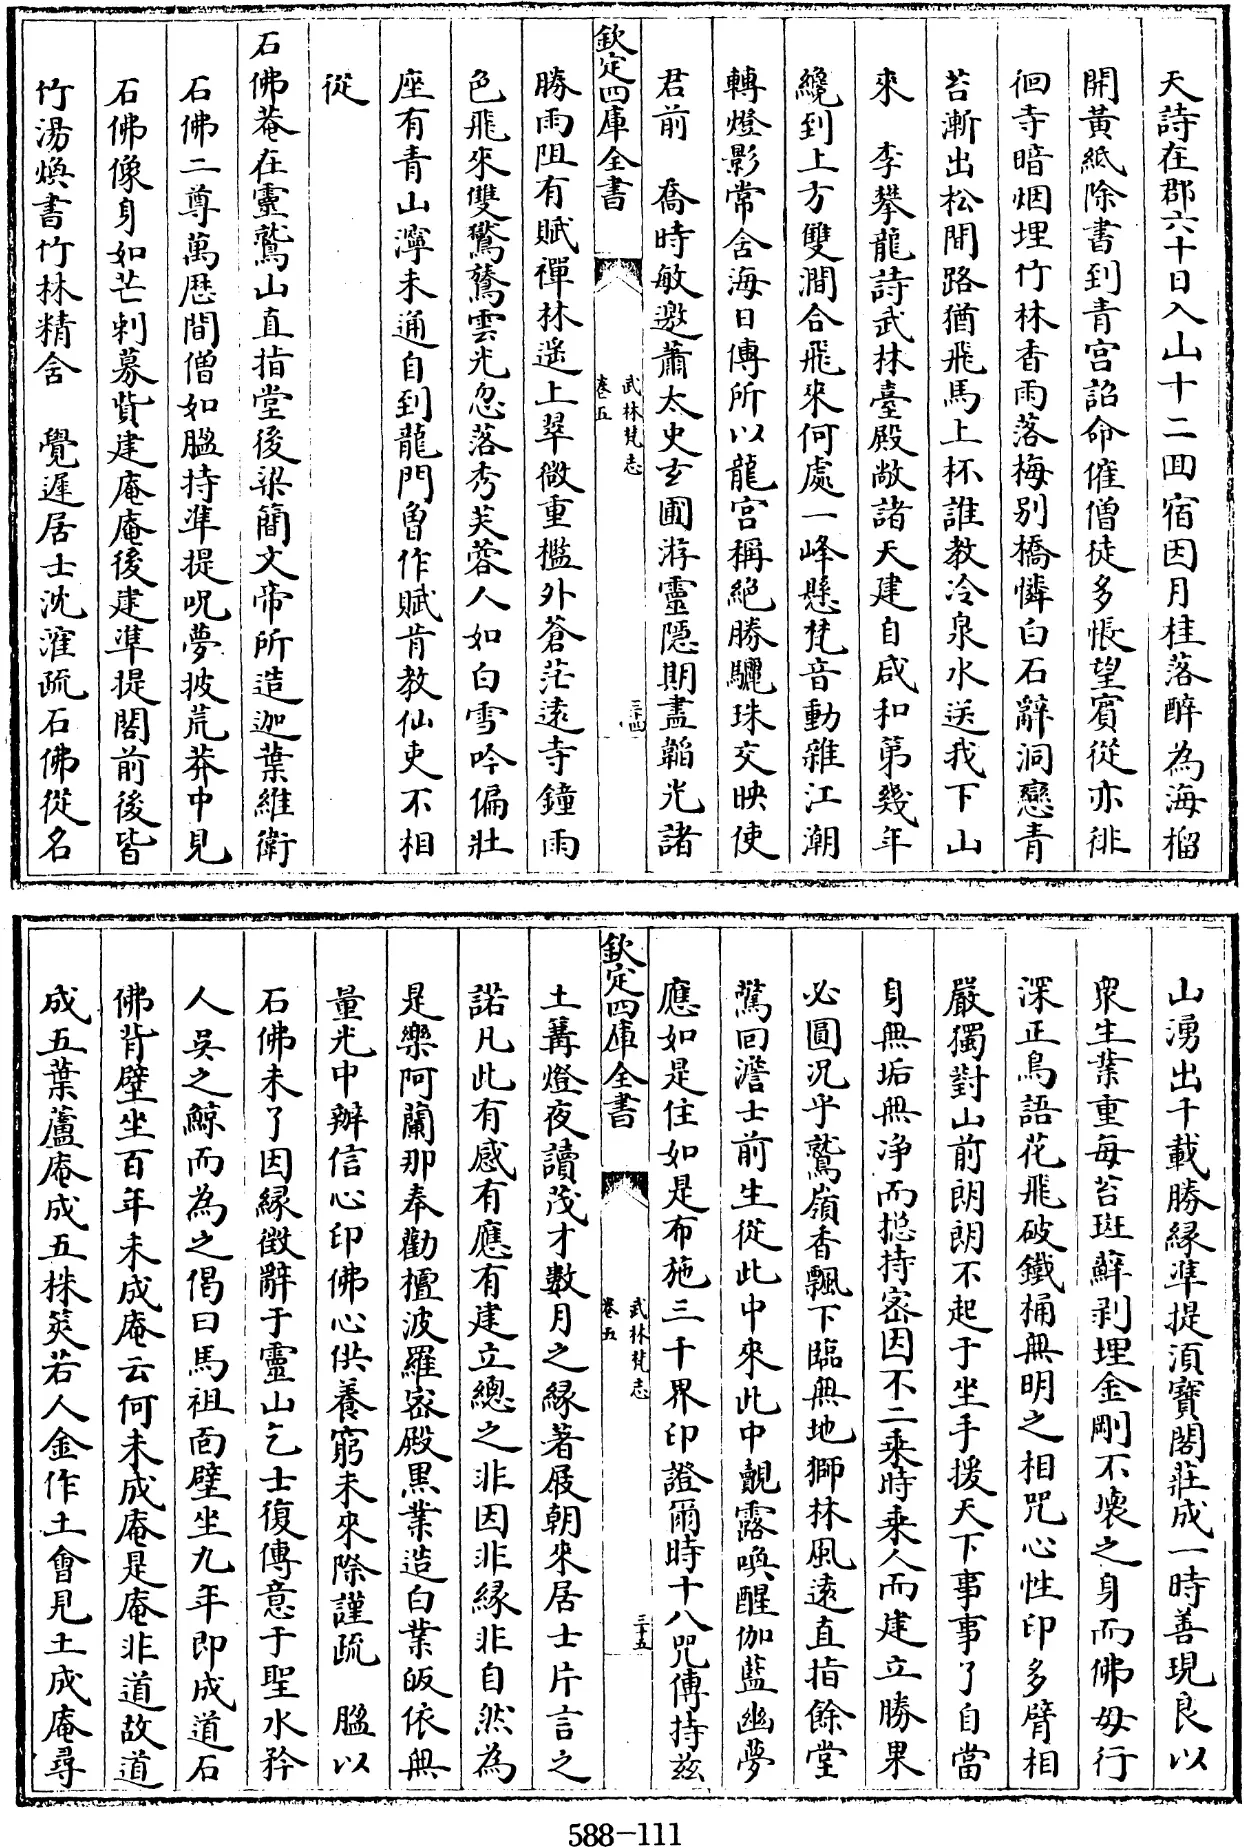 天詩在郡六十日入山十二回宿因月桂落醉為海榴
開黃紙除書到青宮詔命催僧徒多悵望賓從亦徘
徊寺暗烟埋竹林香雨落梅别橋憐白石辭洞戀青
苔漸出松間路猶飛馬上杯誰教冷泉水送我下山
來　李攀龍詩武林臺殿敞諸天建自咸和第幾年
纔到上方雙澗合飛來何處一峰懸梵音動雜江潮
轉燈影常含海日傳所以龍宮稱絶勝驪珠交映使
君前　喬時敏邀蕭太史玄圃游靈隱期盡韜光諸
欽定四庫全書
武林梵志
卷五
三十四
勝雨阻有賦禪林遥上翠微重檻外蒼茫遠寺鐘雨
色飛來雙鷲驚雲光忽落秀芙蓉人如白雪吟偏壯
座有青山濘未通自到龍門曾作賦肯教仙吏不相
從
石佛菴在靈鷲山直指堂後梁簡文帝所造迦葉維衛
石佛二尊萬歴間僧如膃持凖提呪夢披荒莽中見
石佛像身如芒刺募貲建庵庵後建凖提閣前後皆
竹湯煥書竹林精舍　覺遲居士沈漼疏石佛從名
山湧出千載勝緣凖提湏寶閣莊成一時善現良以
衆生業重每苔斑蘚剥埋金剛不壞之身而佛母行
深正鳥語花飛破鐵桶無明之相咒心性印多臂相
嚴獨對山前朗朗不起于坐手援天下事事了自當
身無垢無净而摠持密因不二乘時乘人而建立勝果
必圓况乎鷲嶺香飄下臨無地獅林風遠直指餘堂
驚回澹士前生從此中來此中覩露喚醒伽藍幽夢
應如是住如是布施三千界印證爾時十八咒傳持兹
欽定四庫全書
武林梵志
卷五
三十五
土篝燈夜讀茂才數月之緣著屐朝來居士片言之
諾凡此有感有應有建立總之非因非緣非自然為
是樂阿蘭那奉勸檀波羅密殿黒業造白業皈依無
量光中辦信心印佛心供養窮未來際謹疏　膃以
石佛未了因緣徴辭于靈山乞士復傳意于聖水矜
人吳之鯨而為之偈曰馬祖面壁坐九年即成道石
佛背壁坐百年未成庵云何未成庵是庵非道故道
成五葉蘆庵成五株筴若人金作土會見土成庵尋
588-111